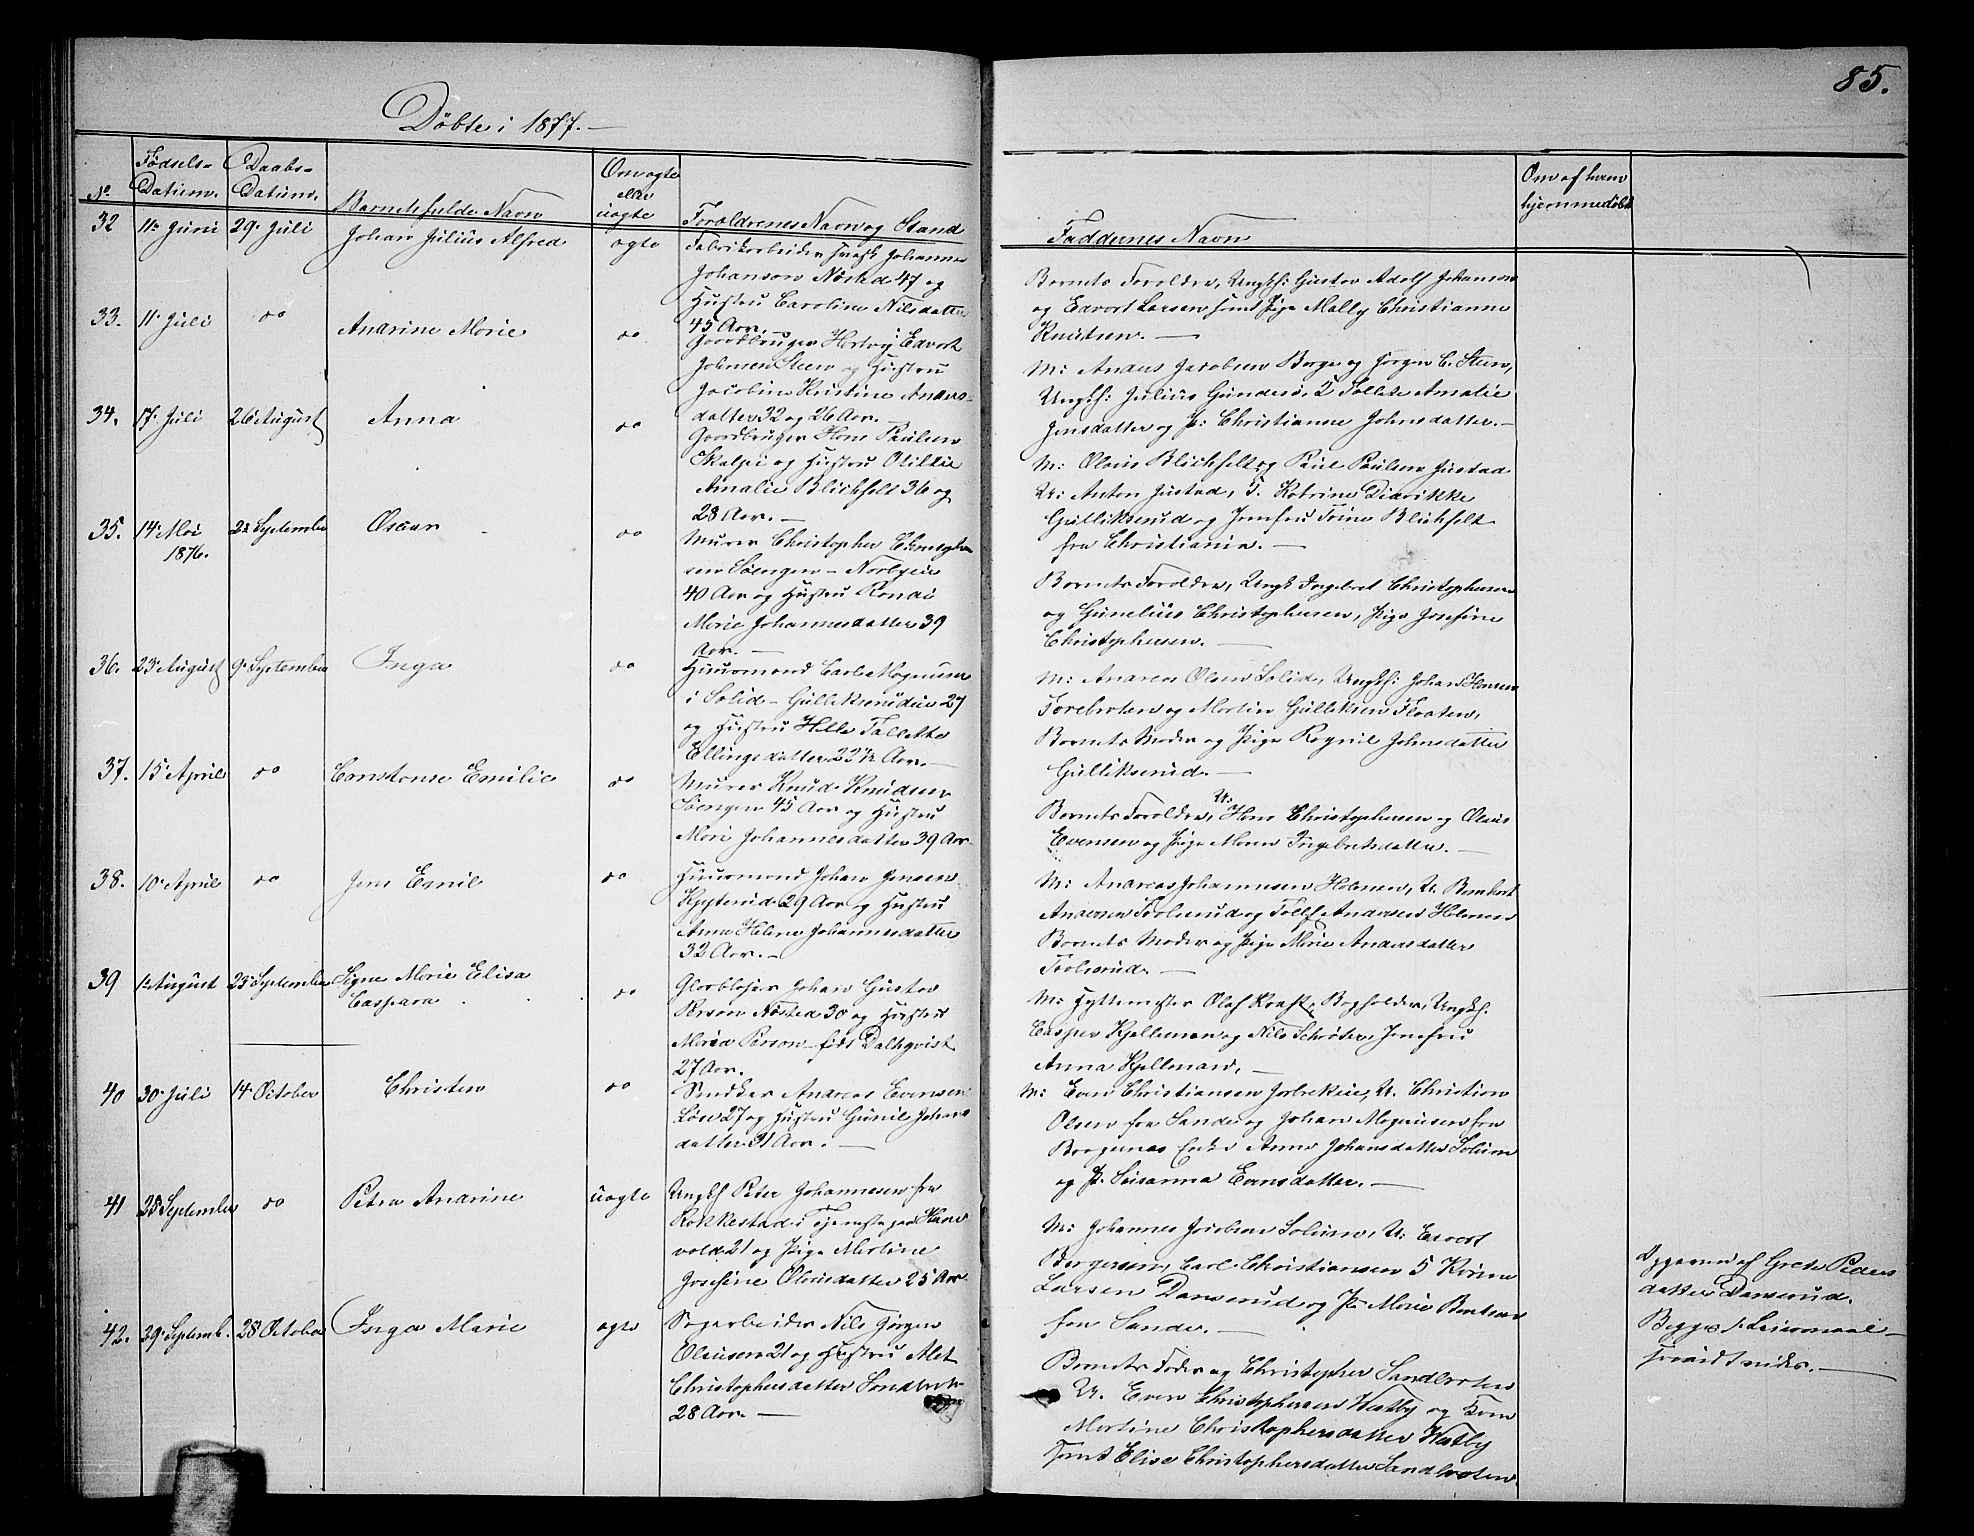 85.
Döbte i 1877.
No
Fødsels-
Datum.
Daabs-
Datum.
Barnets fulde Navn
Om ægte
eller
uægte
Forældrenes Navn og Stand
Faddernes Navn
Om af hvem
hjemmedøbt
32 11te Juni 29. Juli Johan Julius Alfred ægte
Fabrikarbeider Johannes
Johanson Nøsted 47 og
Hustru Caroline Nilsdatter
45 Aar.
Barnets Forældre, Ungk: Gustav Adolf Johanson
og Edvart Larsen samt Pige Mally Christianne
Knutsen.
33. 11. Juli do Andrine Marie do
Gaardbruger Hartvig Edvart
Johnsen Steen og Hustru
Jacobine Kristine Anders-
datter 32 og 26 Aar.
M: Anders Jacobsen Berge og Jørgen C. Steen,
Ungk: Julius Gundersø, T Amalie
Jensdatter og P: Christianne Johnsdatter.
34. 17. Juli 26 August Anna do
Gaardbruger Hans Paulsen
Skalpei og Hustru Otillie
Amalie Blichfelt 36 og
28 Aar.
M: Olaus Blichfelt og Paul Paulsen Justad
U: Anton Justad, T. Katrine Didrikke
Gulliksrud og Jomfru Trine Blichfelt
fra Christiania.
35. 14. Mai
1876.
2d September Oscar do
Murer Christopher Christopher-
sen Søengen - Norbyeie
40 Aar og Hustru Randi
Marie Johannesdatter 39
Aar.
Barnets Forældre, Ungk Ingebret Christophersen
og Gunelius Christophersen, Pige Josefine
Christophersen.
36. 23. August 9. September Inga do
Huusmand Carl Magnussen
i Solid - Gulliksrudeie 27
og Hustru Helle Tallette
Ellingsdatter 22½ Aar.
M: Andreas Olsen Solid, Ungk: Johan Hansen
Forebraten og Martin Gulliksen Flaaten,
Barnets Moder og Pige Ragnil Johnsdatter
Gulliksrud.
37. 15. April do Constanse Emilie do
Murer Knud Knudsen
Søengen 45 Aar og Hustru
Mari Johannesdatter 39 Aar
Barnets Forældre, U: Hans Christophersen og Olaus
Evensen og Pige Maren Ingebretsdatter.
38. 10. April do Jens Emil do
Huusmand Johan Jensen
29 Aar og Hustru
Anne Helene Johannesdatter
32 Aar.
M: Andreas Johannesen Holmen, U. Bernhart
Andersen Foolserud og Andersen Holmen
Barnets Moder og Pige Marie Andersdatter
Foolserud.
39 1. August 23. September Signe Marie Elisa
Caspara do
Glasblæser Johan Gustav
Person Nøsted 30 og Hustru
Maria Person - født Dalhqvist
27 Aar.
M: Hyttemester Olaf Kraft, Bogholder, Ungk:
Casper Kjelleman og Nils Schrøter, Jomfru
Anna Kjelleman.
40 30. Juli 14. October Christen do
Snedker Andreas Evensen
Løse 27 og Hustru Gunil Johans
datter 31 Aar.
M: Even Christiansen Jarbrekeie, U. Christian
Olsen fra Sande og Johan Magnusen fra
Borgernæs Enke Anne Johansdatter Solum
og P. Susanna Evensdatter.
41 25. September do Petra Andrine uægte
Ungk Peter Johannesen fra
Rakkestad i Tjeneste paa Han-
vold 21 og Pige Martine
Josefine Olausdatter 25 Aar
M: Johannes Jacobsen Solum, U: Edvart
Borgersen, Carl Christiansen Korum
Larsen Danserud og P: Marie Berntsen
fra Sande.
Opgaven af Grete Peders
datter Danserud.
Begges 1. Leiermaal
saavidt vides.
42. 29. Septemb. 28. October Inga Marie ægte
Sagarbeider Nils Jørgen
Olausen 21 og Hustru Alet
Christophersdatter Sandbraten
28 Aar.
Barnets Fader og Christopher Sandbraten
U. Even Christophersen Vestby og Kone
Martine Christophersdatter Vestby
samt Elise Christophersdatter Sandbraten.